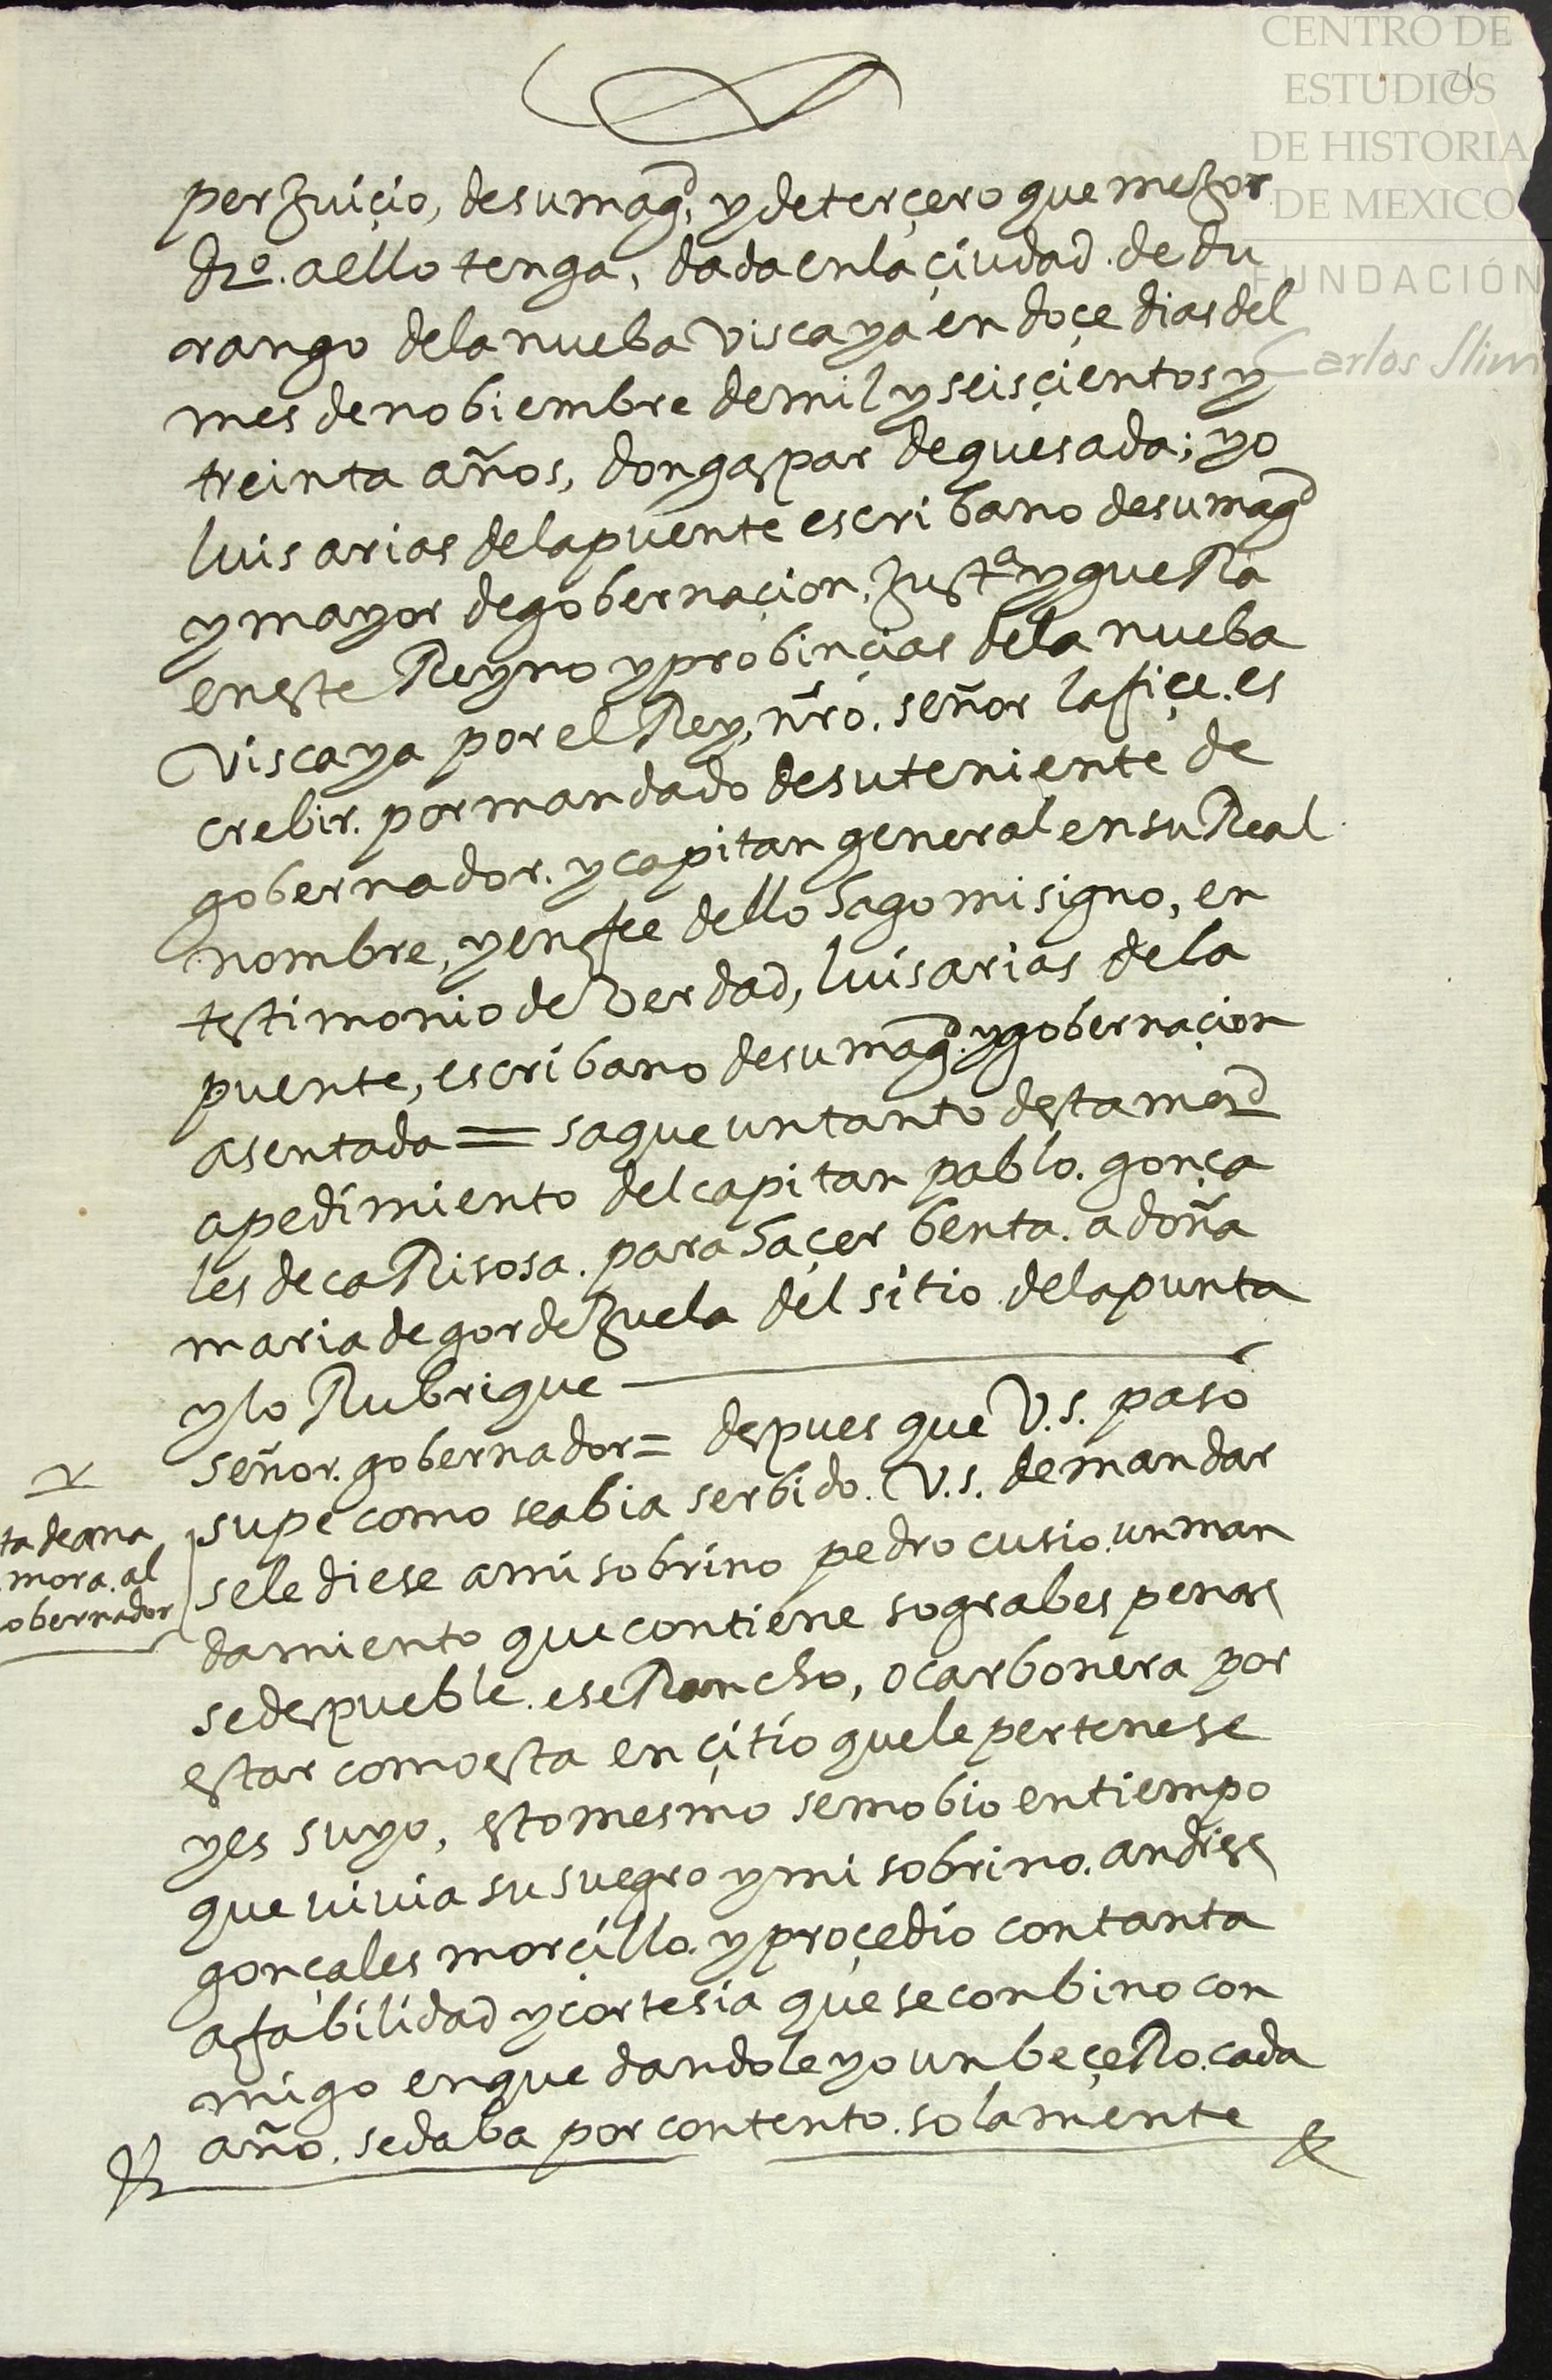 CENTRO DE
ESTUDIOS
DE HISTORIA
DE MEXICO
FUNDACIÓN
Carlos Slim
21
perjuiçio, de su magd, y de terçero que mejor
dro. a ello tenga, dada en la çiudad de du
rango de la nueba Viscaya en doçe dias del
mes de nobiembre de mil y seisçientos y
treinta años, don gaspar de quesada; yo
luis arias de la puente escribano de su magd
y mayor de gobernaçion, justa y gueRa
en este Reyno y probinçias de la nueba
Viscaya por el Rey, nro. señor la fiçe es
crebir. por mandado de su teniente de
gobernador. y capitan general en su Real
nombre, y en fee dello hago mi signo, en
testimonio de Verdad, luis arias de la
puente, escribano de su magd. y gobernaçion
asentada = saque un tanto desta merd
a pedimiento del capitan pablo. gonça
les de caRisosa. para haçer benta. a doña
maria de gordejuela del sitio de la punta
y lo Rubrique
señor. gobernador = despues que V.S. pasó
supe como se abia serbido. V.S. de mandar
se le diese a mi sobrino pedro cusio. un man
damiento que contiene so grabes penas
se despueble. ese Rancho, o carbonera por
estar como esta en çitio que le pertenese
y es suyo, esto mesmo se mobio en tiempo
que uiuia su suegro y mi sobrino. andres
gonçales morçillo. y proçedio con tanta
afabilidad y cortesia que se conbino con
migo en que dandole yo un beçeRo. cada
año. se daba por contento. solamente
ta de ana
mora. al
obernador